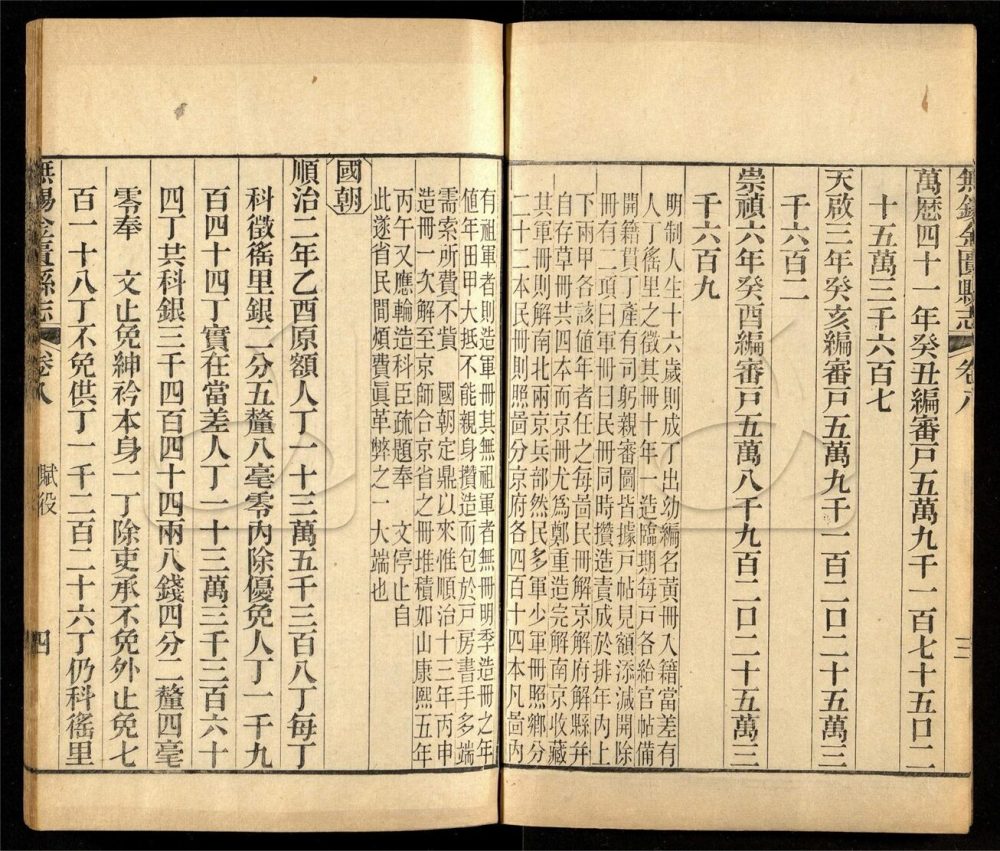 無錫金匱縣志 卷八 三
萬曆四十一年癸丑編審戸五萬九千一百七十五口二
十五萬三千六百七
天啟三年癸亥編審戸五萬九千一百二口二十五萬三
千六百二
崇禎六年癸酉編審戸五萬八千九百二口二十五萬三
千六百九
明制人生十六歲則成丁出幼編名黃冊入籍當差有
人丁徭里之徵其冊十年一造臨期每戸各給官帖備
開籍貫丁產有司躬親審圖皆據戸帖見額添減開除
冊有二項曰軍冊曰民冊同時攢造責成於排年內上
下兩甲各該值年者任之每啚民冊解京解府解縣幷
自存草冊共四本而京冊尤爲鄭重造完解南京收藏
其軍冊則解南北兩京兵部然民多軍少軍冊照鄉分
二十二本民冊則照啚分京府各四百十四本凡啚內
有祖軍者則造軍冊其無祖軍者無冊明季造冊之年
值年田甲大抵不能親身攢造而包於戸房書手多端
需索所費不貲　國朝定鼎以來惟順治十三年丙申
造冊一次解至京師合京省之冊堆積如山康熙五年
丙午又應輪造科臣疏題奉　文停止自
此遂省民間煩費眞革弊之一大端也
國朝
順治二年乙酉原額人丁一十三萬五千三百八丁每丁
科徵徭里銀二分五釐八毫零內除優免人丁一千九
百四十四丁實在當差人丁一十三萬三千三百六十
四丁共科銀三千四百四十四兩八錢四分二釐四毫
零奉　文止免紳衿本身一丁除吏承不免外止免七
百一十八丁不免供丁一千二百二十六丁仍科徭里
無錫金匱縣志 卷八 賦役 四